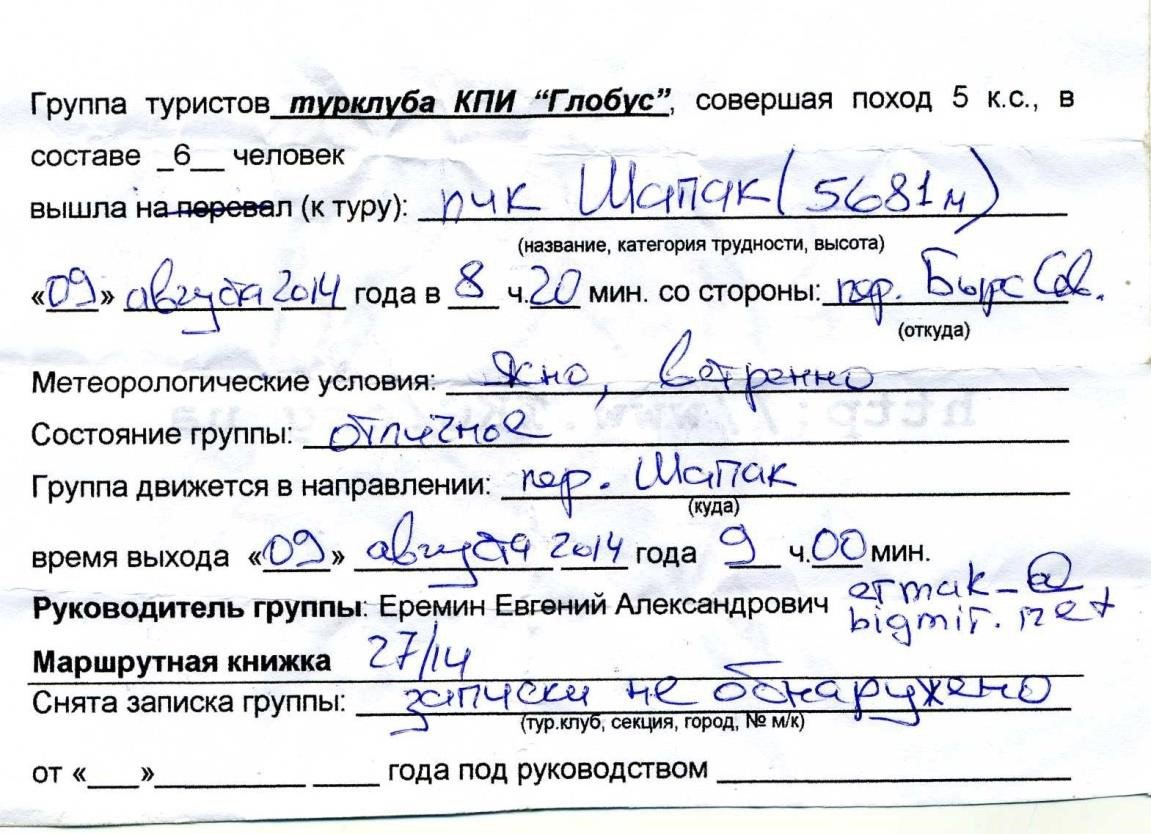 Группа туристов турклуба КПИ “Глобус”, совершая поход 5 к.с., в
составе _6__ человек
вышла на перевал (к туру): пик Шапак (5681м)
(название, категория трудности, высота)
«09» августа 2014 года в 8 ч.20 мин. со стороны: пер. Бырс Сев.
(откуда)
Метеорологические условия: Ясно, ветренно
Состояние группы: отличное
Группа движется в направлении: пер. Шапак
(куда)
время выхода «09» августа 2014 года 9 ч.00 мин.
Руководитель группы: Еремин Евгений Александрович ermak_@
bigmir.net
Маршрутная книжка 27/14
Снята записка группы: записки не обнаружено
(тур.клуб, секция, город, № м/к)
от «___»__________ ____ года под руководством ______________________